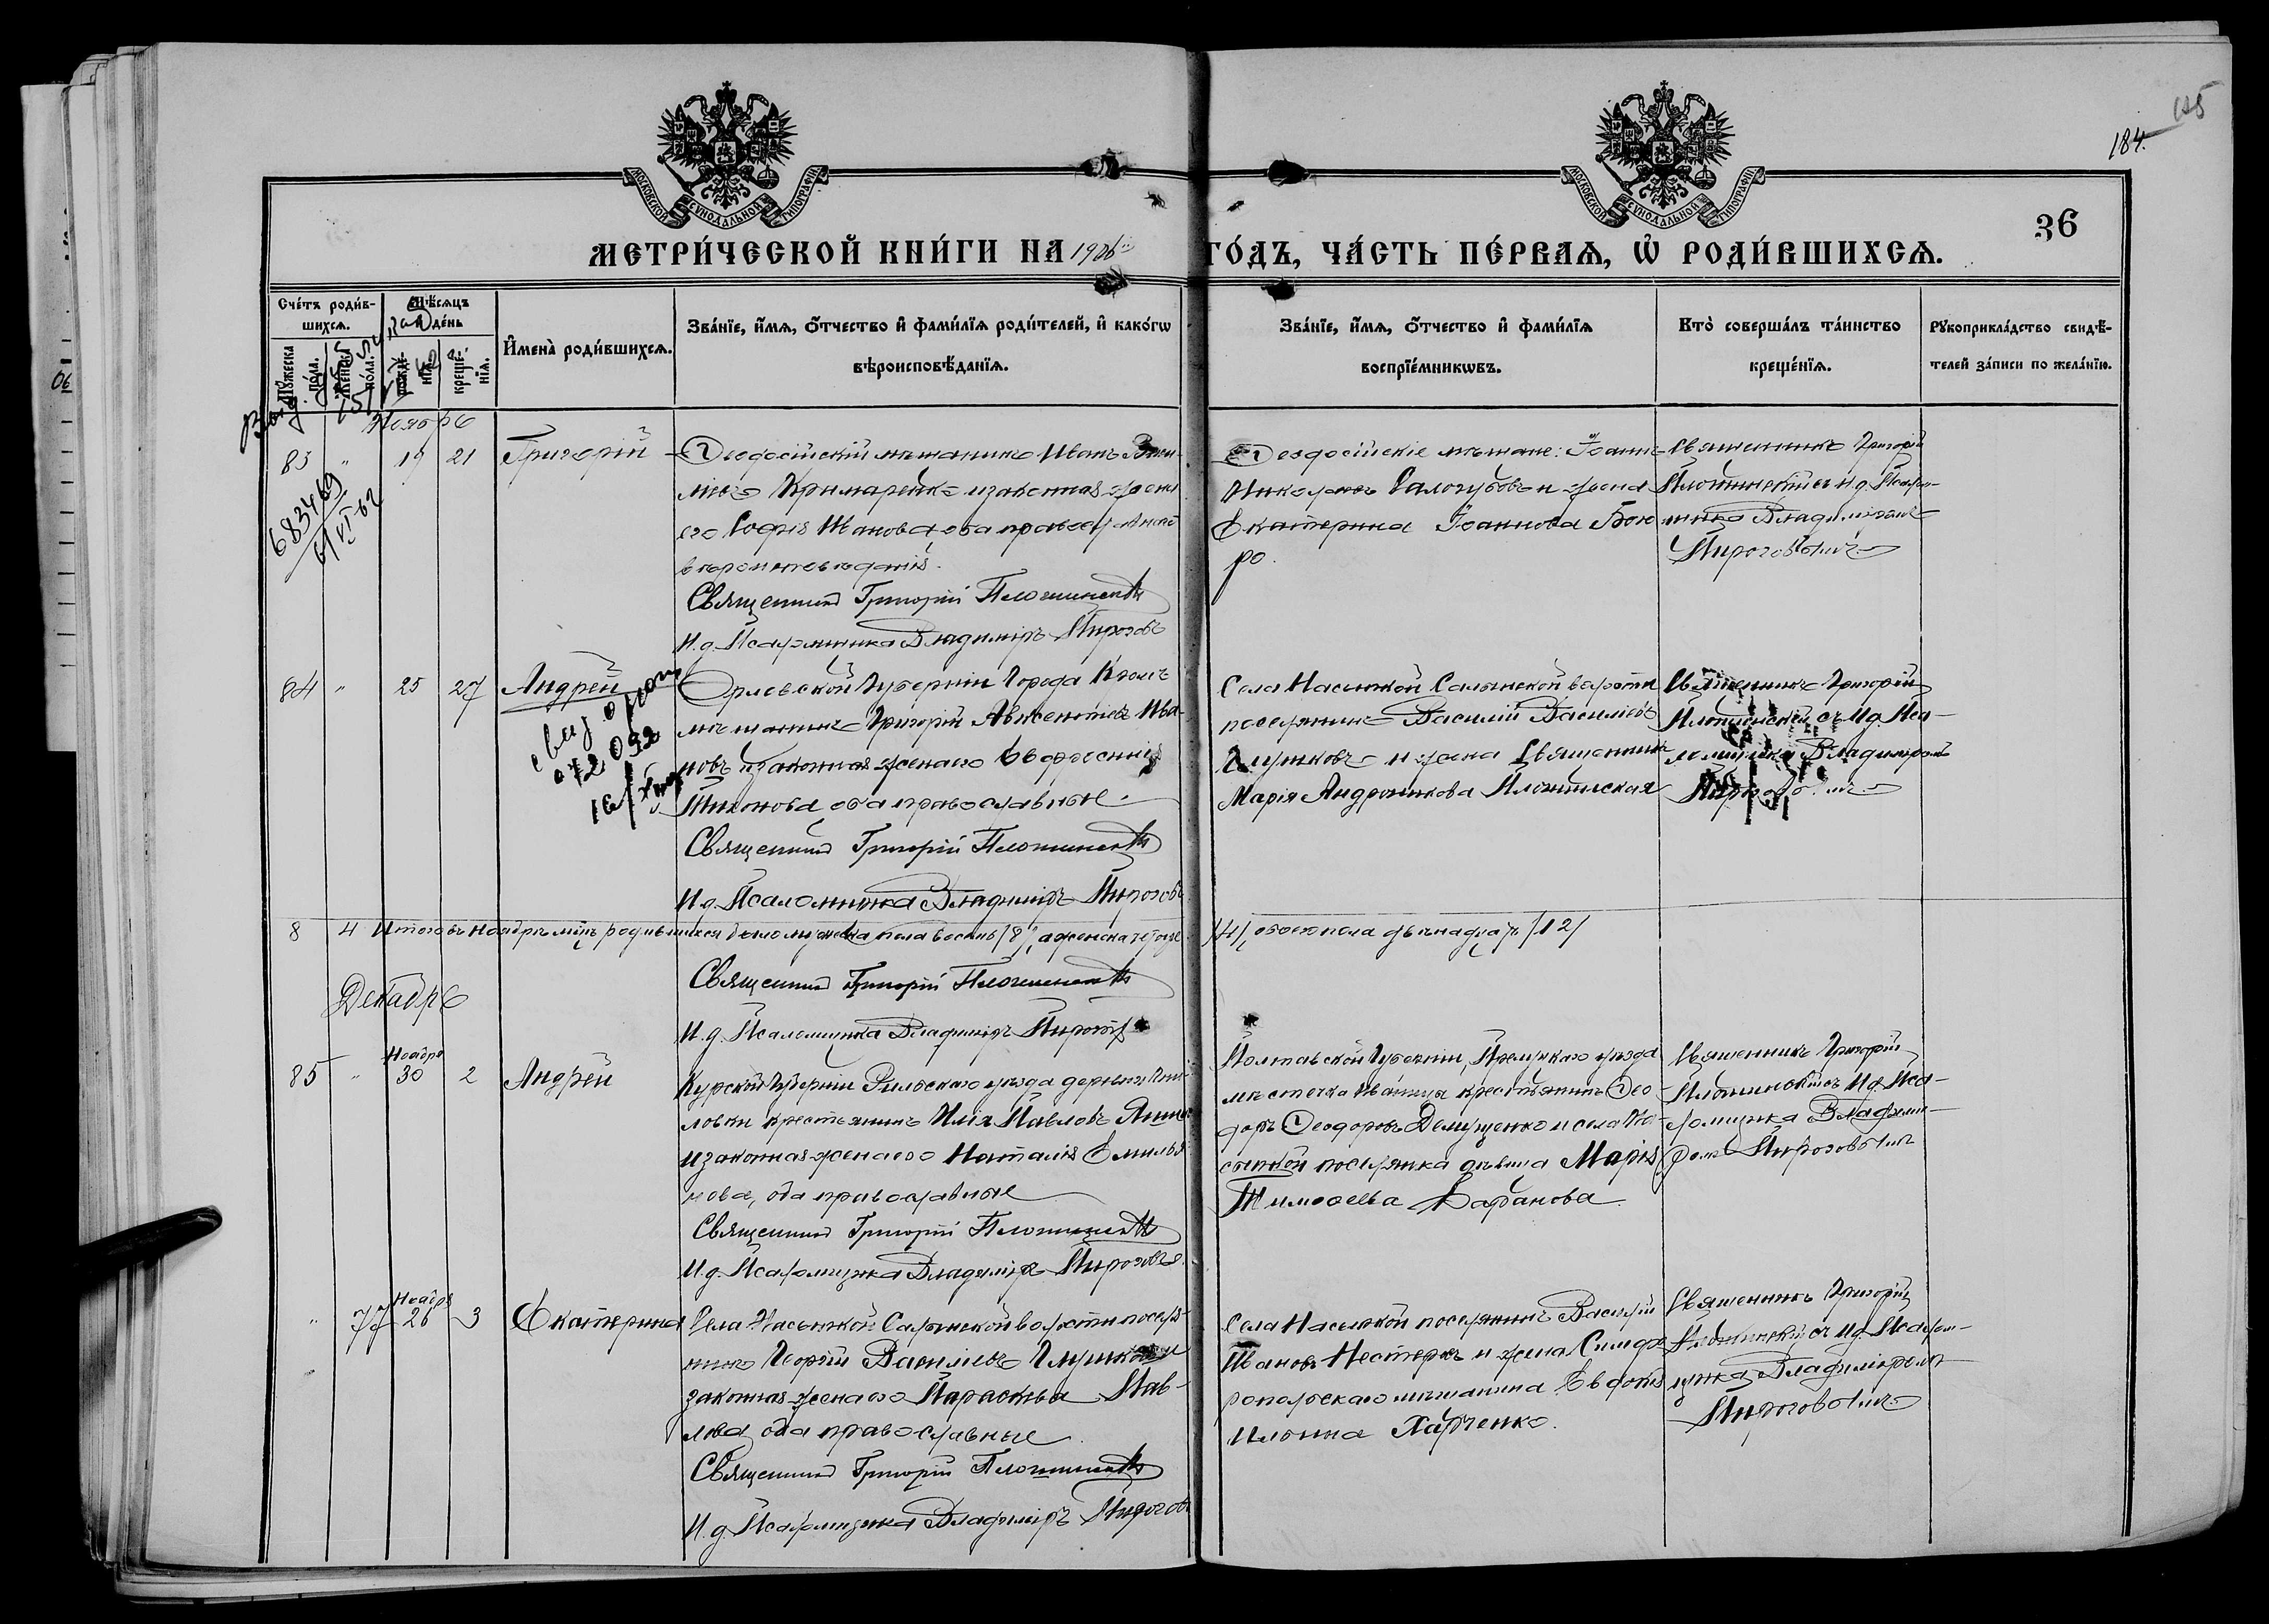 185
184.
МОСКОВСКОЙ СѴНОДАЛЬНОЙ ТИПОГРАФІИ
МОСКОВСКОЙ СѴНОДАЛЬНОЙ ТИПОГРАФІИ
36
МЕТРИ́ЧЕСКОЙ КНИ́ГИ НА 1906й ГО́ДЪ, ЧА́СТЬ ПЕ́РВАѦ, Ѡ҆ РОДИ́ВШИХСѦ.
Сче́тъ роди́в-
шихсѧ.
Мѣ́сѧцъ
де́нь
Мꙋ́жеска по́ла.
Же́нска по́ла.
рожде́-нїѧ.
креще́-нїѧ.
И҆мена̀ роди́вшихсѧ.
Зва́нїе, и҆́мѧ, ѻ҆́тчество и҆ фами́лїѧ роди́телей, и҆ како́гѡ
вѣроисповѣ́данїѧ.
Зва́нїе, и҆́мѧ, ѻ҆́тчество и҆ фами́лїѧ
воспрїе́мникѡвъ.
Кто̀ соверша́лъ та́инство
креще́нїѧ.
Рꙋкоприкла́дство свидѣ́-
телей за́писи по жела́нїю.
Ноябрь
83 " 19 21 Григорій
Ѳеодосійскій мѣщанинъ Иванъ
Кримаренко и законная жена
его Софія Иванова, оба православнаго
вѣроисповѣданія.
Священникъ Григорій Плотинскій
И.д. Псаломщика Владиміръ Пироговъ
Ѳеодосійскіе мѣщане: Іоаннъ
Николаевъ Салогубовъ и жена
Екатерина Іоаннова Бон
ро.
Священникъ Григорій
Плотинскій съ И.д. Псалом-
щика Владиміромъ
Пироговымъ
683469
6/VI 62
84 " 25 27 Андрей
Орловской Губерніи Города Кромъ
мѣщанинъ Григорій Авксентіевъ Ива-
новъ и законная жена его Евфросинія
Тихонова оба православные.
Священникъ Григорій Плотинскій
И.д. Псаломщика Владиміръ Пироговъ
Села Насыпкой Салынской волости
поселянинъ Василій Васильевъ
Глушковъ и жена Священника
Марія Андроникова Плотинская
Священникъ Григорій
Плотинскій съ И.д. Пса-
ломщика Владиміромъ
Пироговымъ
072092
8 4 Итого въ Ноябрѣ мѣц. родившихся было мужеска пола восемь /8/, а женска четыре /4/, обоего пола двѣнадцать /12/
Священникъ Григорій Плотинскій
И.д. Псаломщика Владиміръ Пироговъ
Декабрь
Ноября
85 " 30 2 Андрей
Курской Губерніи Рильскаго уѣзда деревни
ловки крестьянинъ Илія Павловъ
и законная жена его Наталія Емилья-
нова, оба православные
Священникъ Григорій Плотинскій
И.д. Псаломщика Владиміръ Пироговъ
Полтавской Губерніи, Прилукаго уѣзда
мѣстечка Иваница крестьянинъ Ѳео-
доръ Ѳеодоровъ Демущенко и села На-
сыпкой поселянка дѣвица Марія
Тимоѳеева Барбанова.
Священникъ Григорій
Плотинскій съ И.д. Пса-
ломщика Владими-
ромъ Пироговымъ
Ноября
" 77 26 3 Екатерина
Села Насыпкой Салынской волости поселя-
нинъ Георгій Васильевъ Глушковъ и
законная жена его Параскева Пав-
лова, оба православные
Священникъ Григорій Плотинскій
И.д. Псаломщика Владиміръ Пироговъ
Села Насыпкой поселянинъ Василій
Ивановъ Нестерюкъ и жена Симфе-
ропольскаго мѣщанина Евдокія
Ильина Харченко.
Священникъ Григорій
Плотинскій съ И.д. Псалом-
щика Владиміромъ
Пироговымъ